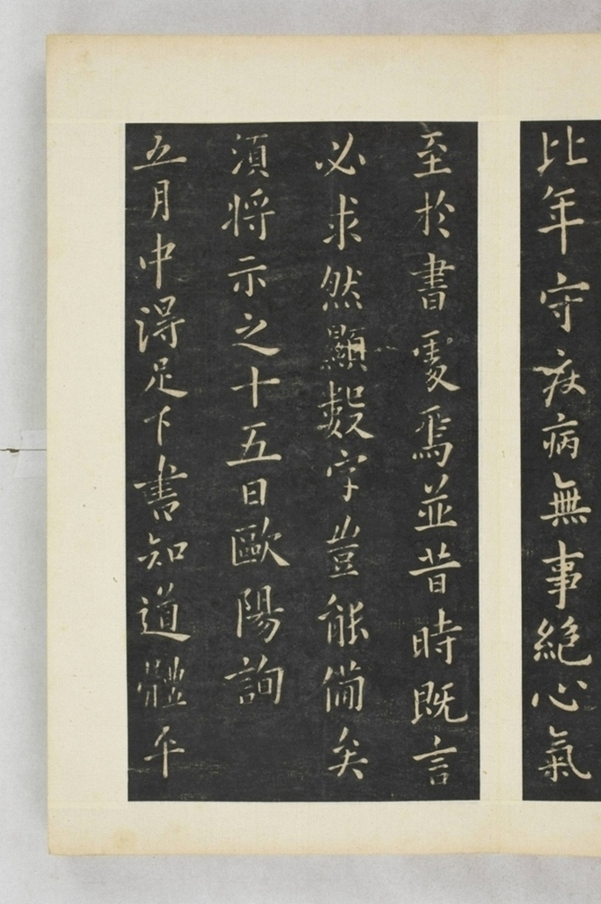 比年守疾病無事絕心氣
至於書處焉並昔時既言
必求然顯數字豈能備矣
須將示之十五日歐陽詢
五月中得足下書知道體平